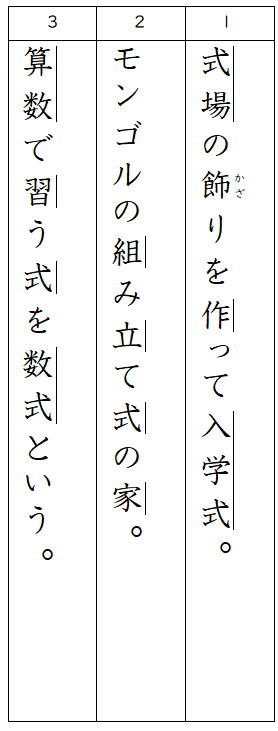 1
式場の飾りを作って入学式。
かざ
2
モンゴルの組み立て式の家。
3
算数で習う式を数式という。